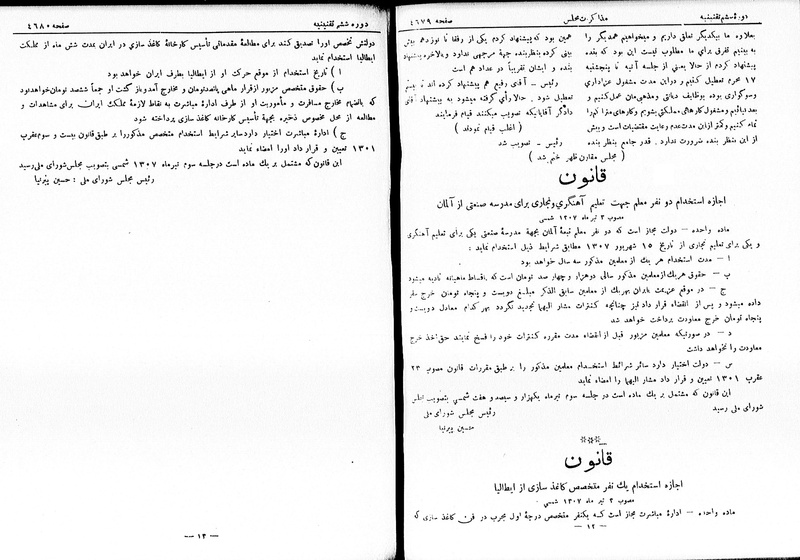 دورهٔ ششم تقنینیه
مذاکرات مجلس
صفحه ٤٦٧٩
بعلاوه ما بیکدیگر تعلق داریم و میخواهیم همدیگر را
به بینیم تفرق برای ما مطلوب نیست این بود که بنده
پیشنهاد کردم از حالا یعنی از جلسه آتیه تا پنجشنبه
١٧ محرم تعطیل کنیم و در این مدت مشغول عزاداری
و سوگواری بوده بوظایف دیانتی و مذهبی‌مان عمل کنیم و
بعد بیائیم و مشغول کارهای مملکتی بشویم و کارهای متراکم را
تمام کنیم و کمتر از این مدت عدم رعایت مقتضیات است و بیش
از این منظر بنده ضرورت ندارد. قدر جامع بنظر بنده
همین بود که پیشنهاد کردم یکی از رفقا تا نوزدهم پیش
بینی کرده بنظر بنده جهة مرجحی ندارد و بالاخره پیشنهاد
بنده و ایشان تقریباً دو عداد هم است
رئیس ـ آقای رفیع هم پیشنهاد کرده اند تا
تعطیل شود. حالا رأی گرفته میشود به پیشنهاد آقای
دادگر آقایانیکه تصویب میکنند قیام فرمایند
( اغلب قیام نمودند )
رئیس ـ تصویب شد
( مجلس مقارن ظهر ختم شد )
قانون
اجازه استخدام دو نفر معلم جهت تعلیم آهنگری و نجاری برای مدرسه صنعتی از آلمان
مصوب ٣ تیر ماه ١٣٠٧ شمسی
ماده واحده ـ دولت مجاز است که دو نفر معلم تبعهٔ آلمان بجهة مدرسهٔ صنعتی یکی برای تعلیم آهنگری
و یکی برای تعلیم نجاری از تاریخ ١٥ شهریور ١٣٠٧ مطابق شرایط ذیل استخدام نماید :
ا ـ مدت استخدام هر یک از معلمین مذکور سه سال خواهد بود
ب ـ حقوق هر یک از معلمین مذکور سالی دو هزار و چهار صد تومان است که باقساط ماهیانه تادیه میشود
ج ـ در موقع عزیمت بایران بهر یک از معلمین سابق الذکر مبلغ دویست و پنجاه تومان خرج سفر
داده میشود و پس از انقضاء قرار داد نیز چنانچه کنترات مشار الیهما تجدید نگردد بهر کدام معادل دویست و
پنجاه تومان خرج معاودت پرداخت خواهد شد
د ـ در صورتیکه معلمین مزبور قبل از انقضاء مدت مقرره کنترات خود را فسخ نمایند حق اخذ خرج
معاودت را نخواهد داشت
س ـ دولت اختیار دارد سائر شرائط استخدام معلمین مذکور را بر طبق مقررات قانون مصوب ٢٣
عقرب ١٣٠١ تعیین و قرار داد مشار الیهما را امضاء نماید
این قانون که مشتمل بر یک ماده است در جلسه سوم تیر ماه یکهزار و سیصد و هفت شمسی بتصویب مجلس
شورای ملی رسید
رئیس مجلس شورای ملی
حسین پیرنیا
***
قانون
اجازه استخدام یک نفر متخصص کاغذ سازی از ایطالیا
مصوب ٣ تیر ماه ١٣٠٧ شمسی
ماده واحده ـ ادارهٔ مباشرت مجاز است که یکنفر متخصص درجهٔ اول مجرب در فن کاغذ سازی که
ـ ١٢ ـ
دوره ششم تقنینیه
صفحه ٤٦٨٠
دولتش تخصص اورا تصدیق کند برای مطالعهٔ مقدماتی تأسیس کارخانهٔ کاغذ سازی در ایران بمدت شش ماه از مملکت
ایطالیا استخدام نماید
ا ) تاریخ استخدام از موقع حرکت او از ایطالیا بطرف ایران خواهد بود
ب ) حقوق متخصص مزبور از قرار ماهی پانصد تومان و مخارج آمد و باز گشت او جمعاً ششصد تومان خواهد بود
که بانضمام مخارج مسافرت و مأموریت او از طرف ادارهٔ مباشرت به نقاط لازمهٔ مملکت ایران برای مشاهدات و
مطالعه از محل مخصوص ذخیره بجهة تأسیس کارخانه کاغذ سازی پرداخته شود
ج ) ادارهٔ مباشرت اختیار دارد سایر شرائط استخدام متخصص مذکور را بر طبق قانون بیست و سوم عقرب
١٣٠١ تعیین و قرار داد اورا امضاء نماید
این قانون که مشتمل بر یک ماده است در جلسه سوم تیر ماه ١٣٠٧ شمسی بتصویب مجلس شورای ملی رسید
رئیس مجلس شورای ملی : حسین پیرنیا
ـ ١٣ ـ